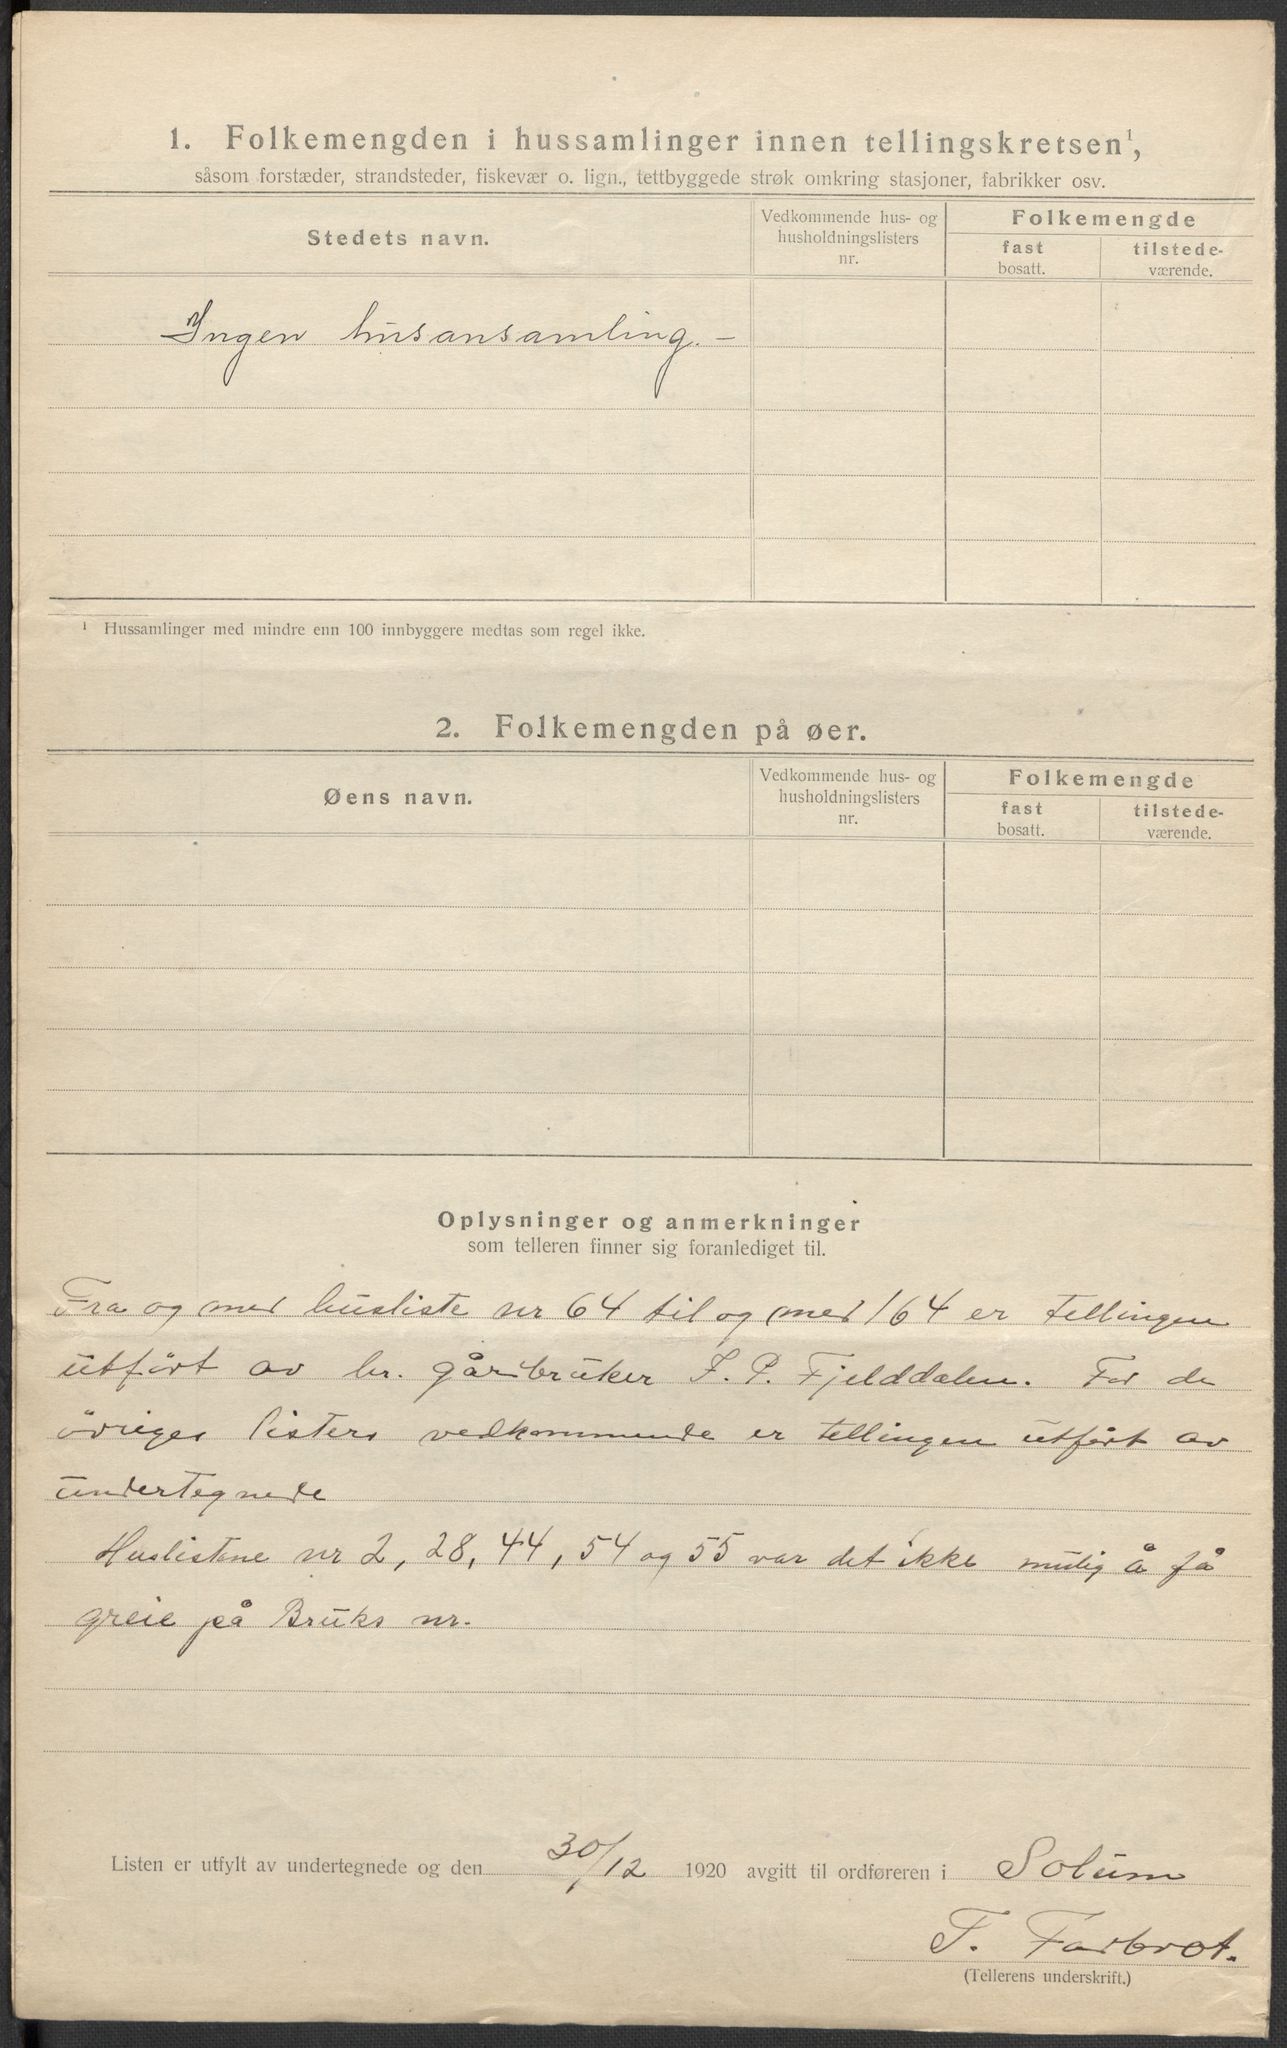 1. Folkemengden i hussamlinger innen tellingskretsen¹,
såsom forstæder, strandsteder, fiskevær o. lign., tettbyggede strøk omkring stasjoner, fabrikker osv.
Stedets navn.
Vedkommende hus- og
husholdningslisters
nr.
Folkemengde
fast
bosatt.
tilstede-
værende.
Ingen husansamling. –
¹ Hussamlinger med mindre enn 100 innbyggere medtas som regel ikke.
2. Folkemengden på øer.
Øens navn.
Vedkommende hus- og
husholdningslisters
nr.
Folkemengde
fast
bosatt.
tilstede-
værende.
Oplysninger og anmerkninger
som telleren finner sig foranlediget til.
Fra og med husliste nr 64 til og med 164 er tellingen
utført av hr. gårdbruker F. P. Fjelddalen. For de
övriges listers vedkommende er tellingen utført av
undertegnede
Huslistene nr 2, 28, 44, 54 og 55 var det ikke mulig å få
greie på Bruks nr.
Listen er utfylt av undertegnede og den 30/12 1920 avgitt til ordføreren i Solum
T. Farbrot.
(Tellerens underskrift.)